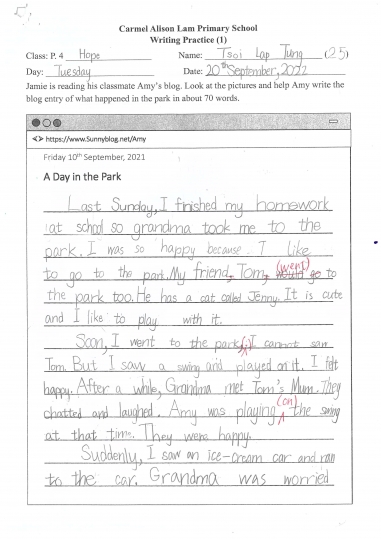 Carmel Alison Lam Primary School
Writing Practice (1)
Class: P. 4 Hope Name: Tsoi Lap Tung (25)
Day: Tuesday Date: 20th September, 2022
Jamie is reading his classmate Amy's blog. Look at the pictures and help Amy write the
blog entry of what happened in the park in about 70 words.
https://www.Sunnyblog.net/Amy
Friday 10th September, 2021
A Day in the Park
Last Sunday, I finished my homework
at school so grandma took me to the
park. I was so happy because I like
to go to the park. My friend, Tom, (went)
would go to
the park too. He has a cat called Jenny. It is cute
and I like to play with it.
Soon, I went to the park. I cannot saw
Tom. But I saw a swing and played on it. I felt
happy. After a while, Grandma met Tom's Mum. They
chatted and laughed. Amy was playing (on) the swing
at that time. They were happy.
Suddenly, I saw an ice-cream car and ran
to the car. Grandma was worried